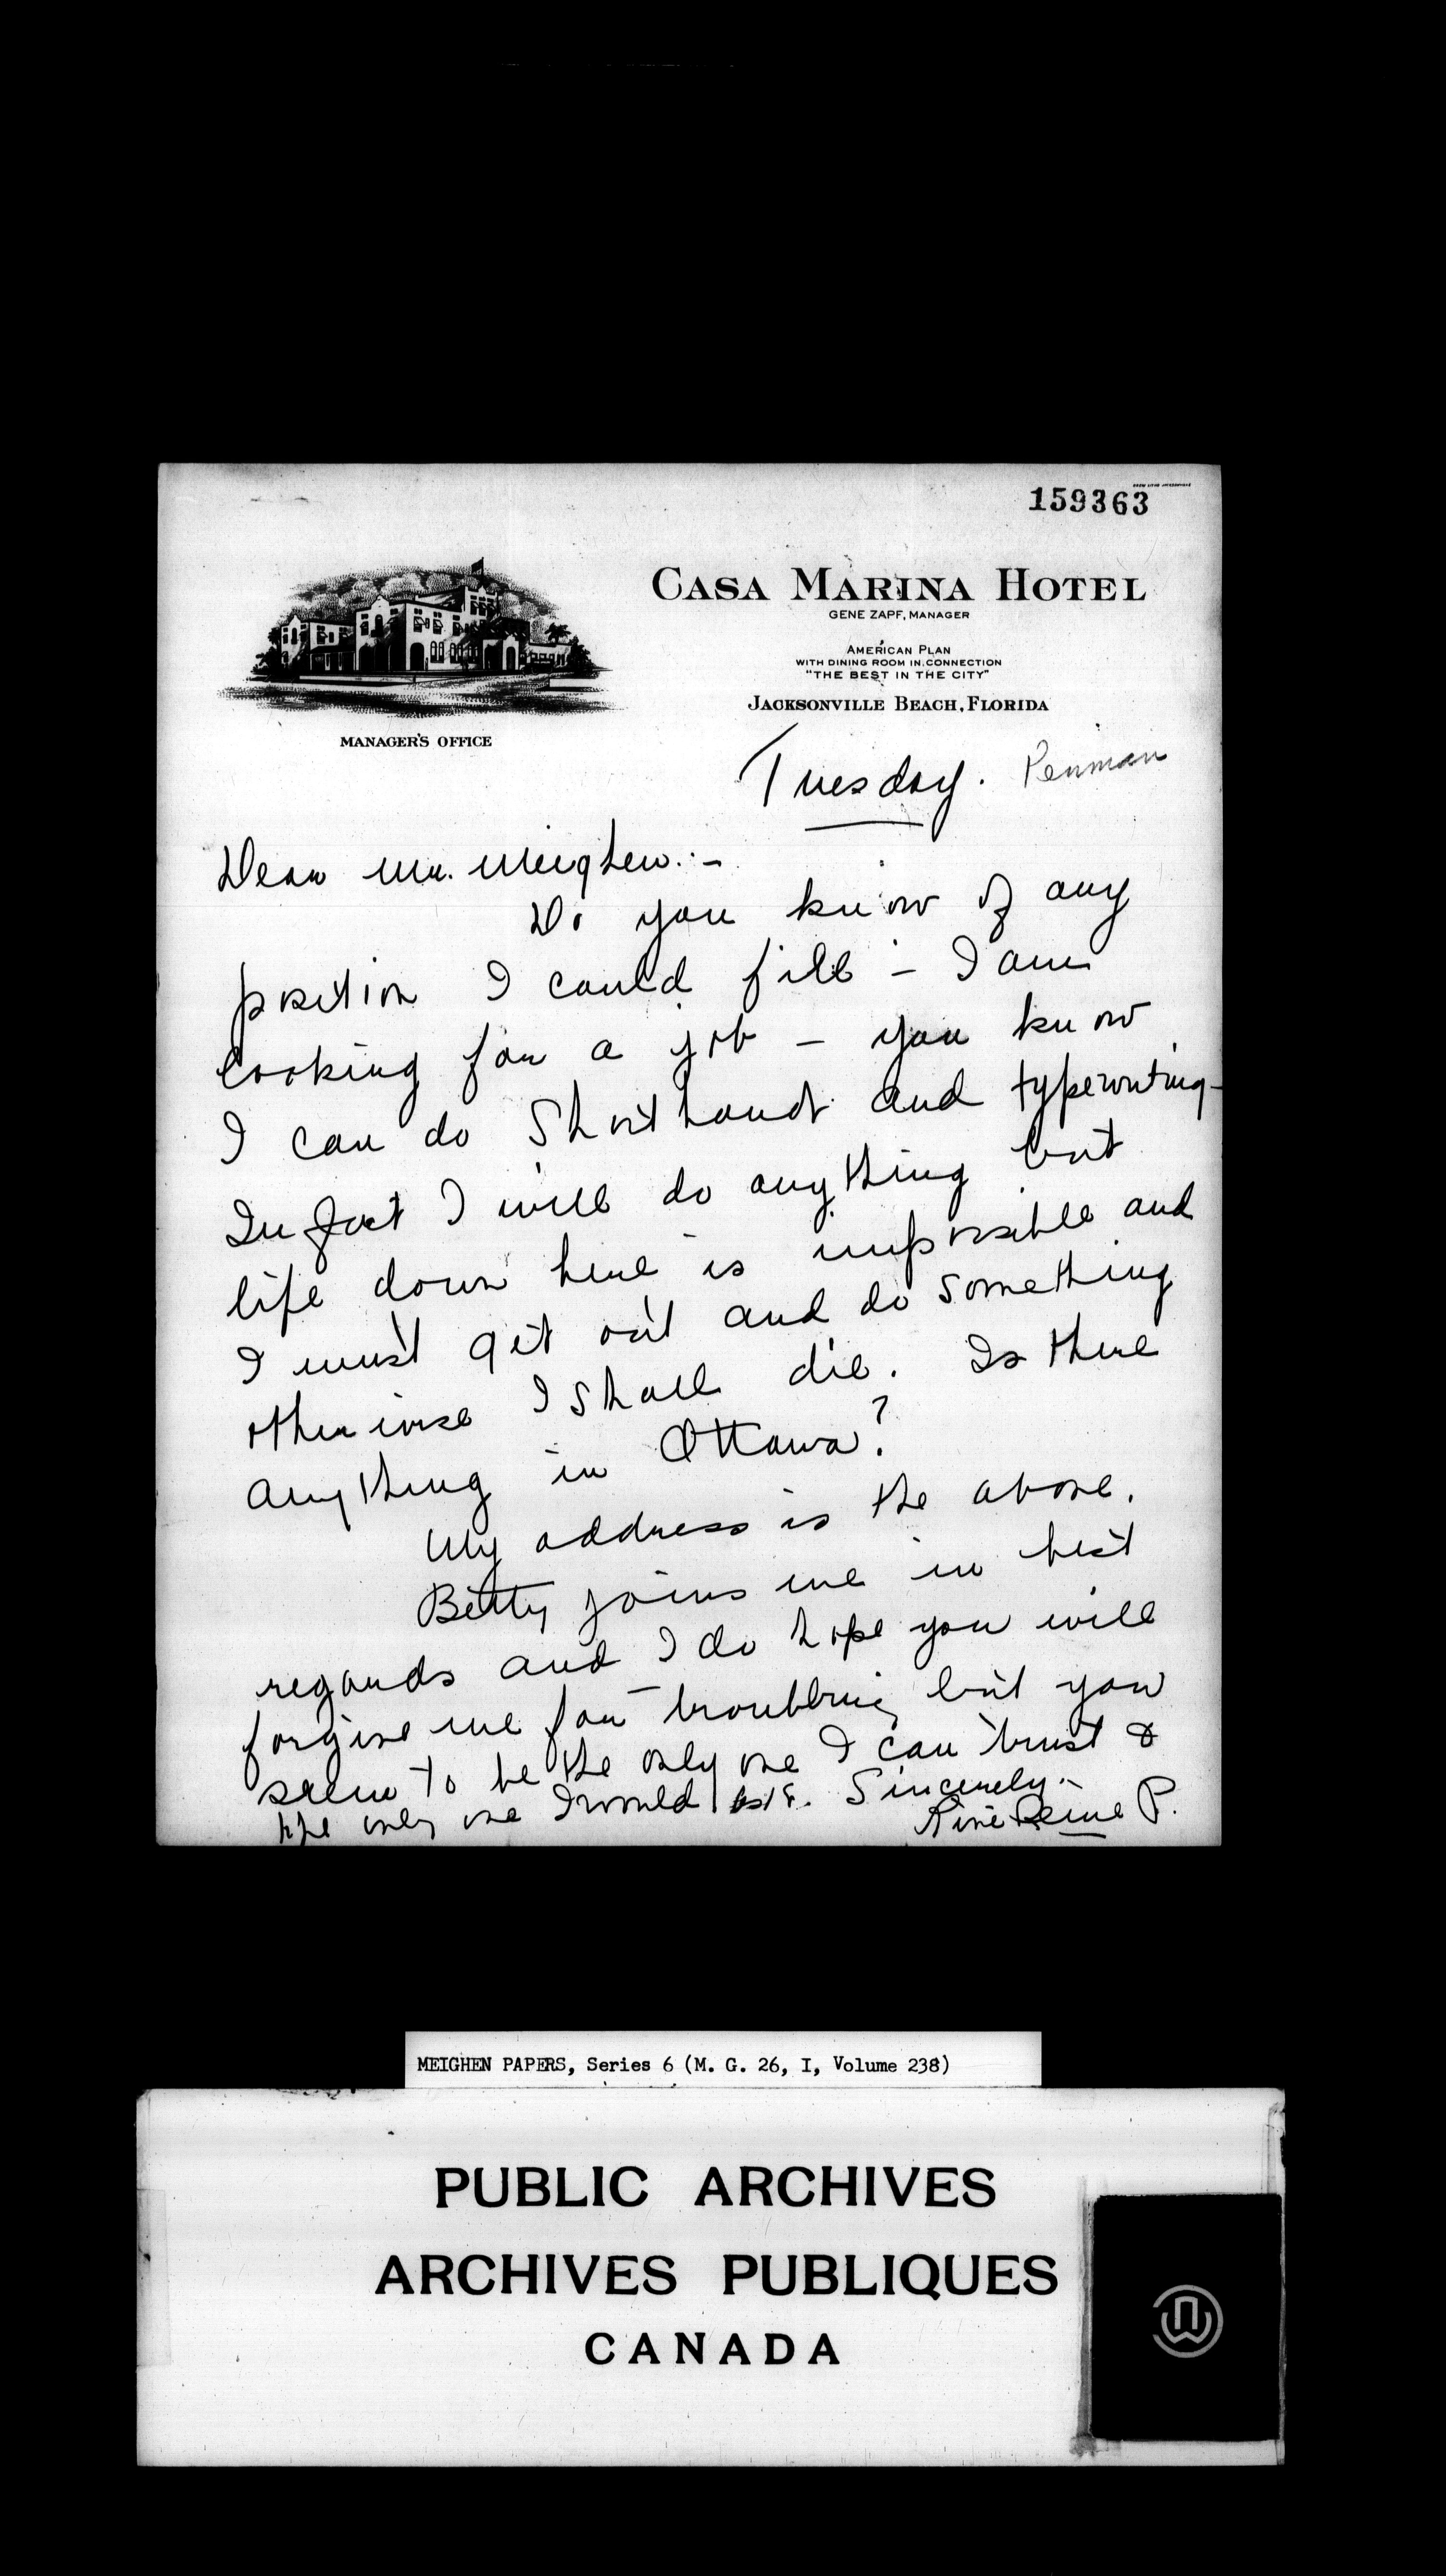 159363
CASA MARINA HOTEL
GENE ZAPF, MANAGER
AMERICAN PLAN
WITH DINING ROOM IN CONNECTION
"THE BEST IN THE CITY"
JACKSONVILLE BEACH, FLORIDA
MANAGER'S OFFICE
Tuesday. Penman
Dear Mr. Meighen:-
Do you know of any
position I could fill - I am
looking for a job - you know
I can do Shorthand and typewriting-
In fact I will do anything but
life down here is impossible and
I must get out and do something
otherwise I shall die. Is there
anything in Ottawa?
My address is the above.
Betty joins me in best
regards and I do hope you will
forgive me for troubling but you
seem to be the only one I can trust &
the only one I would ask. Sincerely-
P.
MEIGHEN PAPERS, Series 6 (M. G. 26, I, Volume 238)
PUBLIC ARCHIVES
ARCHIVES PUBLIQUES
CANADA